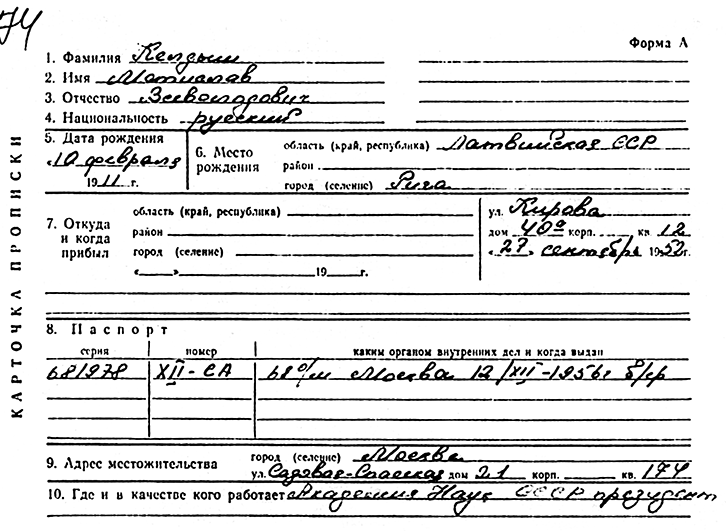 174
Форма А
1. Фамилия Келдыш
2. Имя Мстислав
3. Отчество Всеволодович
4. Национальность русский
5. Дата рождения
«10 февраля
1911 г.
6. Место рождения
область (край, республика) Латвийская ССР
район
город (селение) Рига
7. Откуда и когда прибыл
область (край, республика)
район
город (селение)
« » 19 г.
ул. Кирова
дом 40а корп. кв. 12
«27» сентябрь 1952 г.
8. Паспорт
серия номер каким органом внутренних дел и когда выдан
681978 XII-СА 68 о/м Москва 12/XII-1956г б/ср
9. Адрес местожительства
город (селение) Москва
ул. Садовая-Спасская дом 21 корп. кв. 174
10. Где и в качестве кого работает Академия Наук СССР президент
КАРТОЧКА ПРОПИСКИ